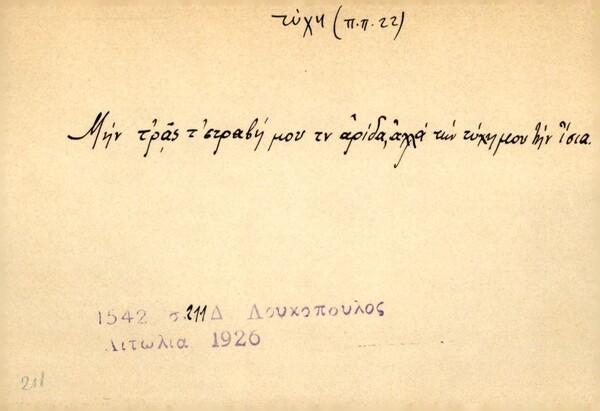 τύχη (π.π. 22)
Μήν τ'ρᾷς τ' στραβή μου τν ἀρίδα, ἀλλά τήν τύχη μου τήν ἴσια.
1542 σ. 211 Δ Λουκοπουλος
Αιτωλια 1926
211